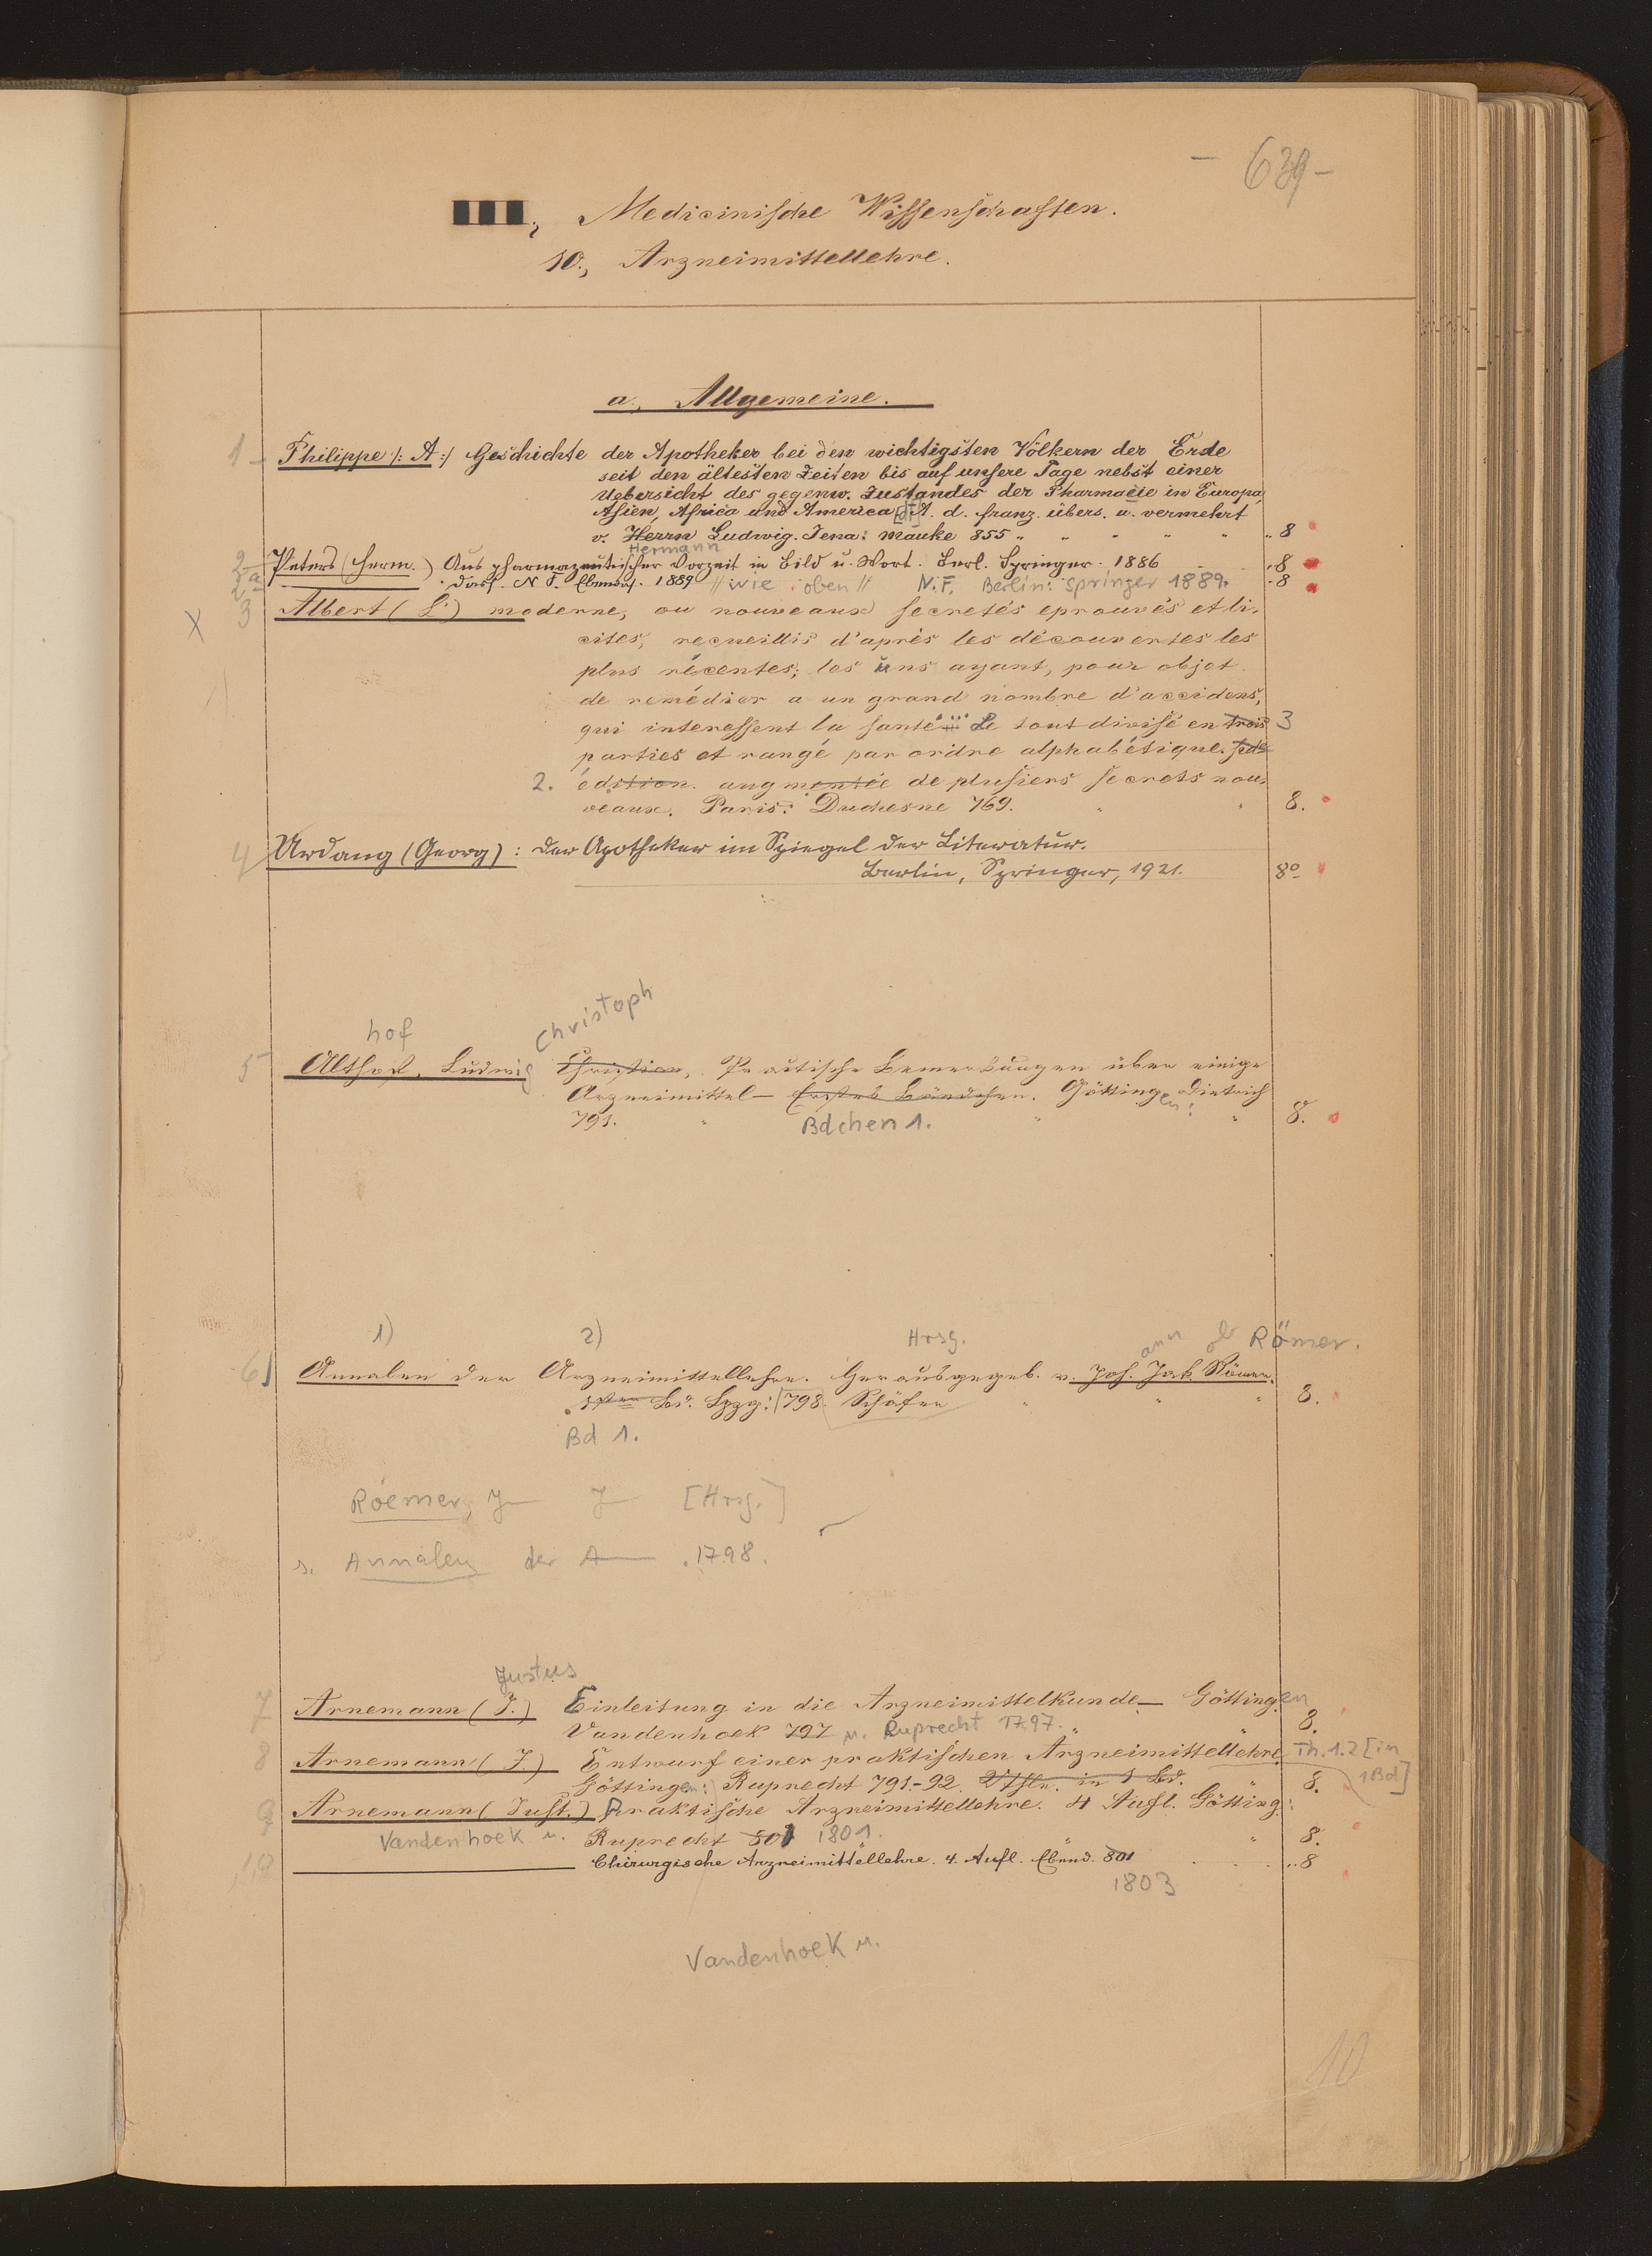 - 639 -
Medicinische Wissenschaften.
10., Arzneimittellehre.
a., Allgemeine.
1 Philippe /: A :/ Geschichte der Apotheker bei den wichtigsten Völkern der Erde
seit den ältesten Zeiten bis auf unsere Tage nebst einer
Uebersicht des gegenw. Zustandes der Pharmacie in Europa,
Asien, Africa und America [dt] A. d. franz. übers. u. vermehrt
v. Herrn Ludwig. Jena: Mauke 855 " " " " " " 8
Hermann
2 Peters (Herm.) Aus pharmazeutischer Vorzeit in Bild u. Wort. Berl. Springer. 1886 8
2a Dass. N. F. Ebendas. 1889 // wie oben // N.F. Berlin: Springer 1889. 8
X 3 Albert (L.) moderne, ou nouveaux secretés eprouvés et li-
cites, recueillis d'après les découvertes les
plus récentes; les uns ayant, pour objet
de remédier a un grand nombre d'accidens,
qui interessent la santé ... Le tout divisé en trois 3
parties et rangé par ordre alphabétique.
2. édition. augmentée de plusiers secrets nou-
veaux. Paris: Duchesne 769. " " 8.
4 Urdang (Georg): Der Apotheker im Spiegel der Literatur.
Berlin, Springer, 1921. 8º
hof Christoph
5 Althof, Ludwig Christian, Practische Bemerkungen über einige
Arzneimittel – Erstes Bändchen. Göttingen: Dietrich
791. " Bdchen 1. " " 8.
1) 2) Hrsg. ann ob Römer.
6 Annalen der Arzneimittellehre. Herausgegeb. v. Joh. Jak. Römer.
1ster Bd. Lpzg: 798. Schäfer " " " 8.
Bd 1.
Roemer, J— J— [Hrsg.]
s. Annalen der A— . 1798.
Justus
7 Arnemann (J.) Einleitung in die Arzneimittelkunde – Göttingen
Vandenhoek 797 u. Ruprecht 1797. " " 8.
8 Arnemann (J.) Entwurf einer praktischen Arzneimittellehre. Th. 1.2 [in
Göttingen: Ruprecht 791-92. 2 Thle. in 1 Bd. " 8. 1 Bd]
9 Arnemann (Just.) Praktische Arzneimittellehre. 4 Aufl. Götting:
Vandenhoek u. Ruprecht 801 1801. " 8.
10 Chirurgische Arzneimittellehre. 4. Aufl. Ebend. 801 8
1803
Vandenhoek u.
10